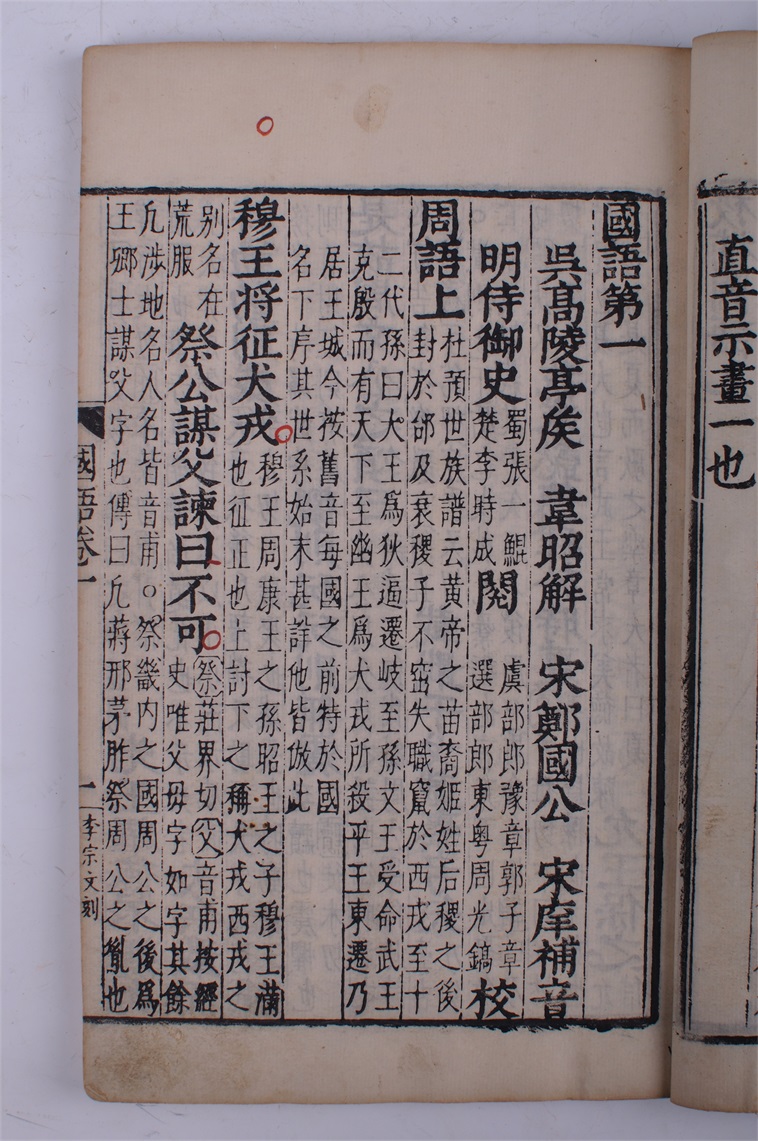 直音示畫一也
國語第一
吳高陵亭矦 韋昭解 宋鄭國公 宋庠補音
明侍御史 蜀張一鯤 楚李時成 閱 虞部郎豫章郭子章 選部郎東粤周光鎬 校
周語上 杜預世族譜云黄帝之苗裔姬姓后稷之後
封於邰及衰稷子不窋失職竄於西戎至十
二代孫曰大王爲狄逼遷岐至孫文王受命武王
克殷而有天下至幽王爲犬戎所殺平王東遷乃
居王城今按舊音每國之前特於國
名下序其世系始末甚詳他皆倣此
穆王将征犬戎 穆王周康王之孫昭王之子穆王滿
也征正也上討下之稱犬戎西戎之
别名在
荒服
祭公謀父諫曰不可 祭莊界切父音甫按經
史唯父母字如字其餘
凡涉地名人名皆音甫。祭畿内之國周公之後爲
王卿士謀父字也傳曰凡蔣邢茅胙祭周公之胤也
國語卷一
一
李宗文刻